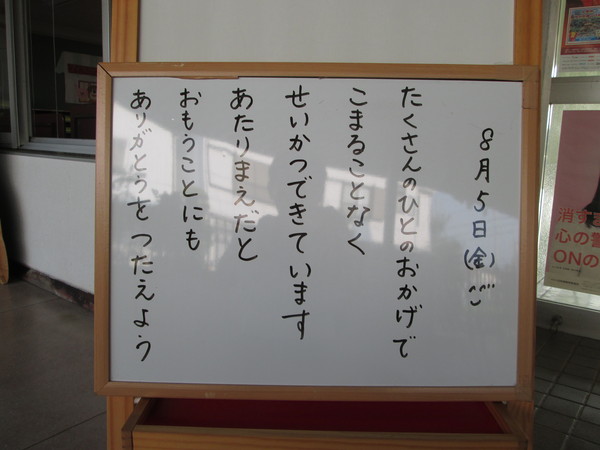 ８月５日(金)
たくさんのひとのおかげで
こまることなく
せいかつできています
あたりまえだと
おもうことにも
ありがとうをつたえよう
心の
ONの